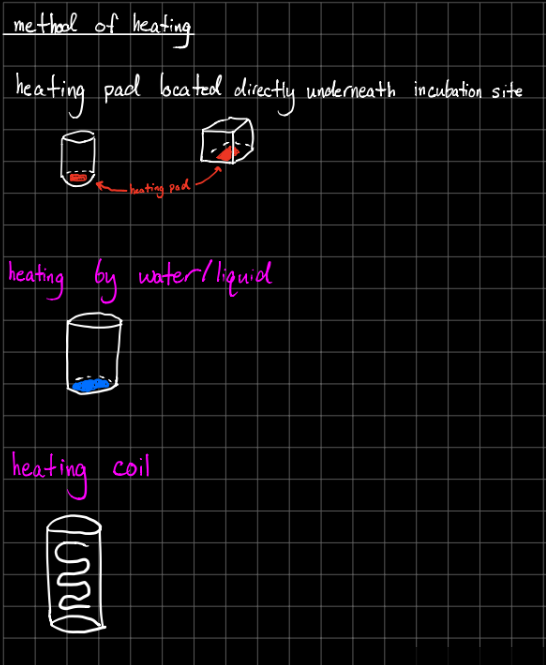 method of heating
heating pad located directly underneath incubation site
heating pad
heating by water/liquid
heating coil